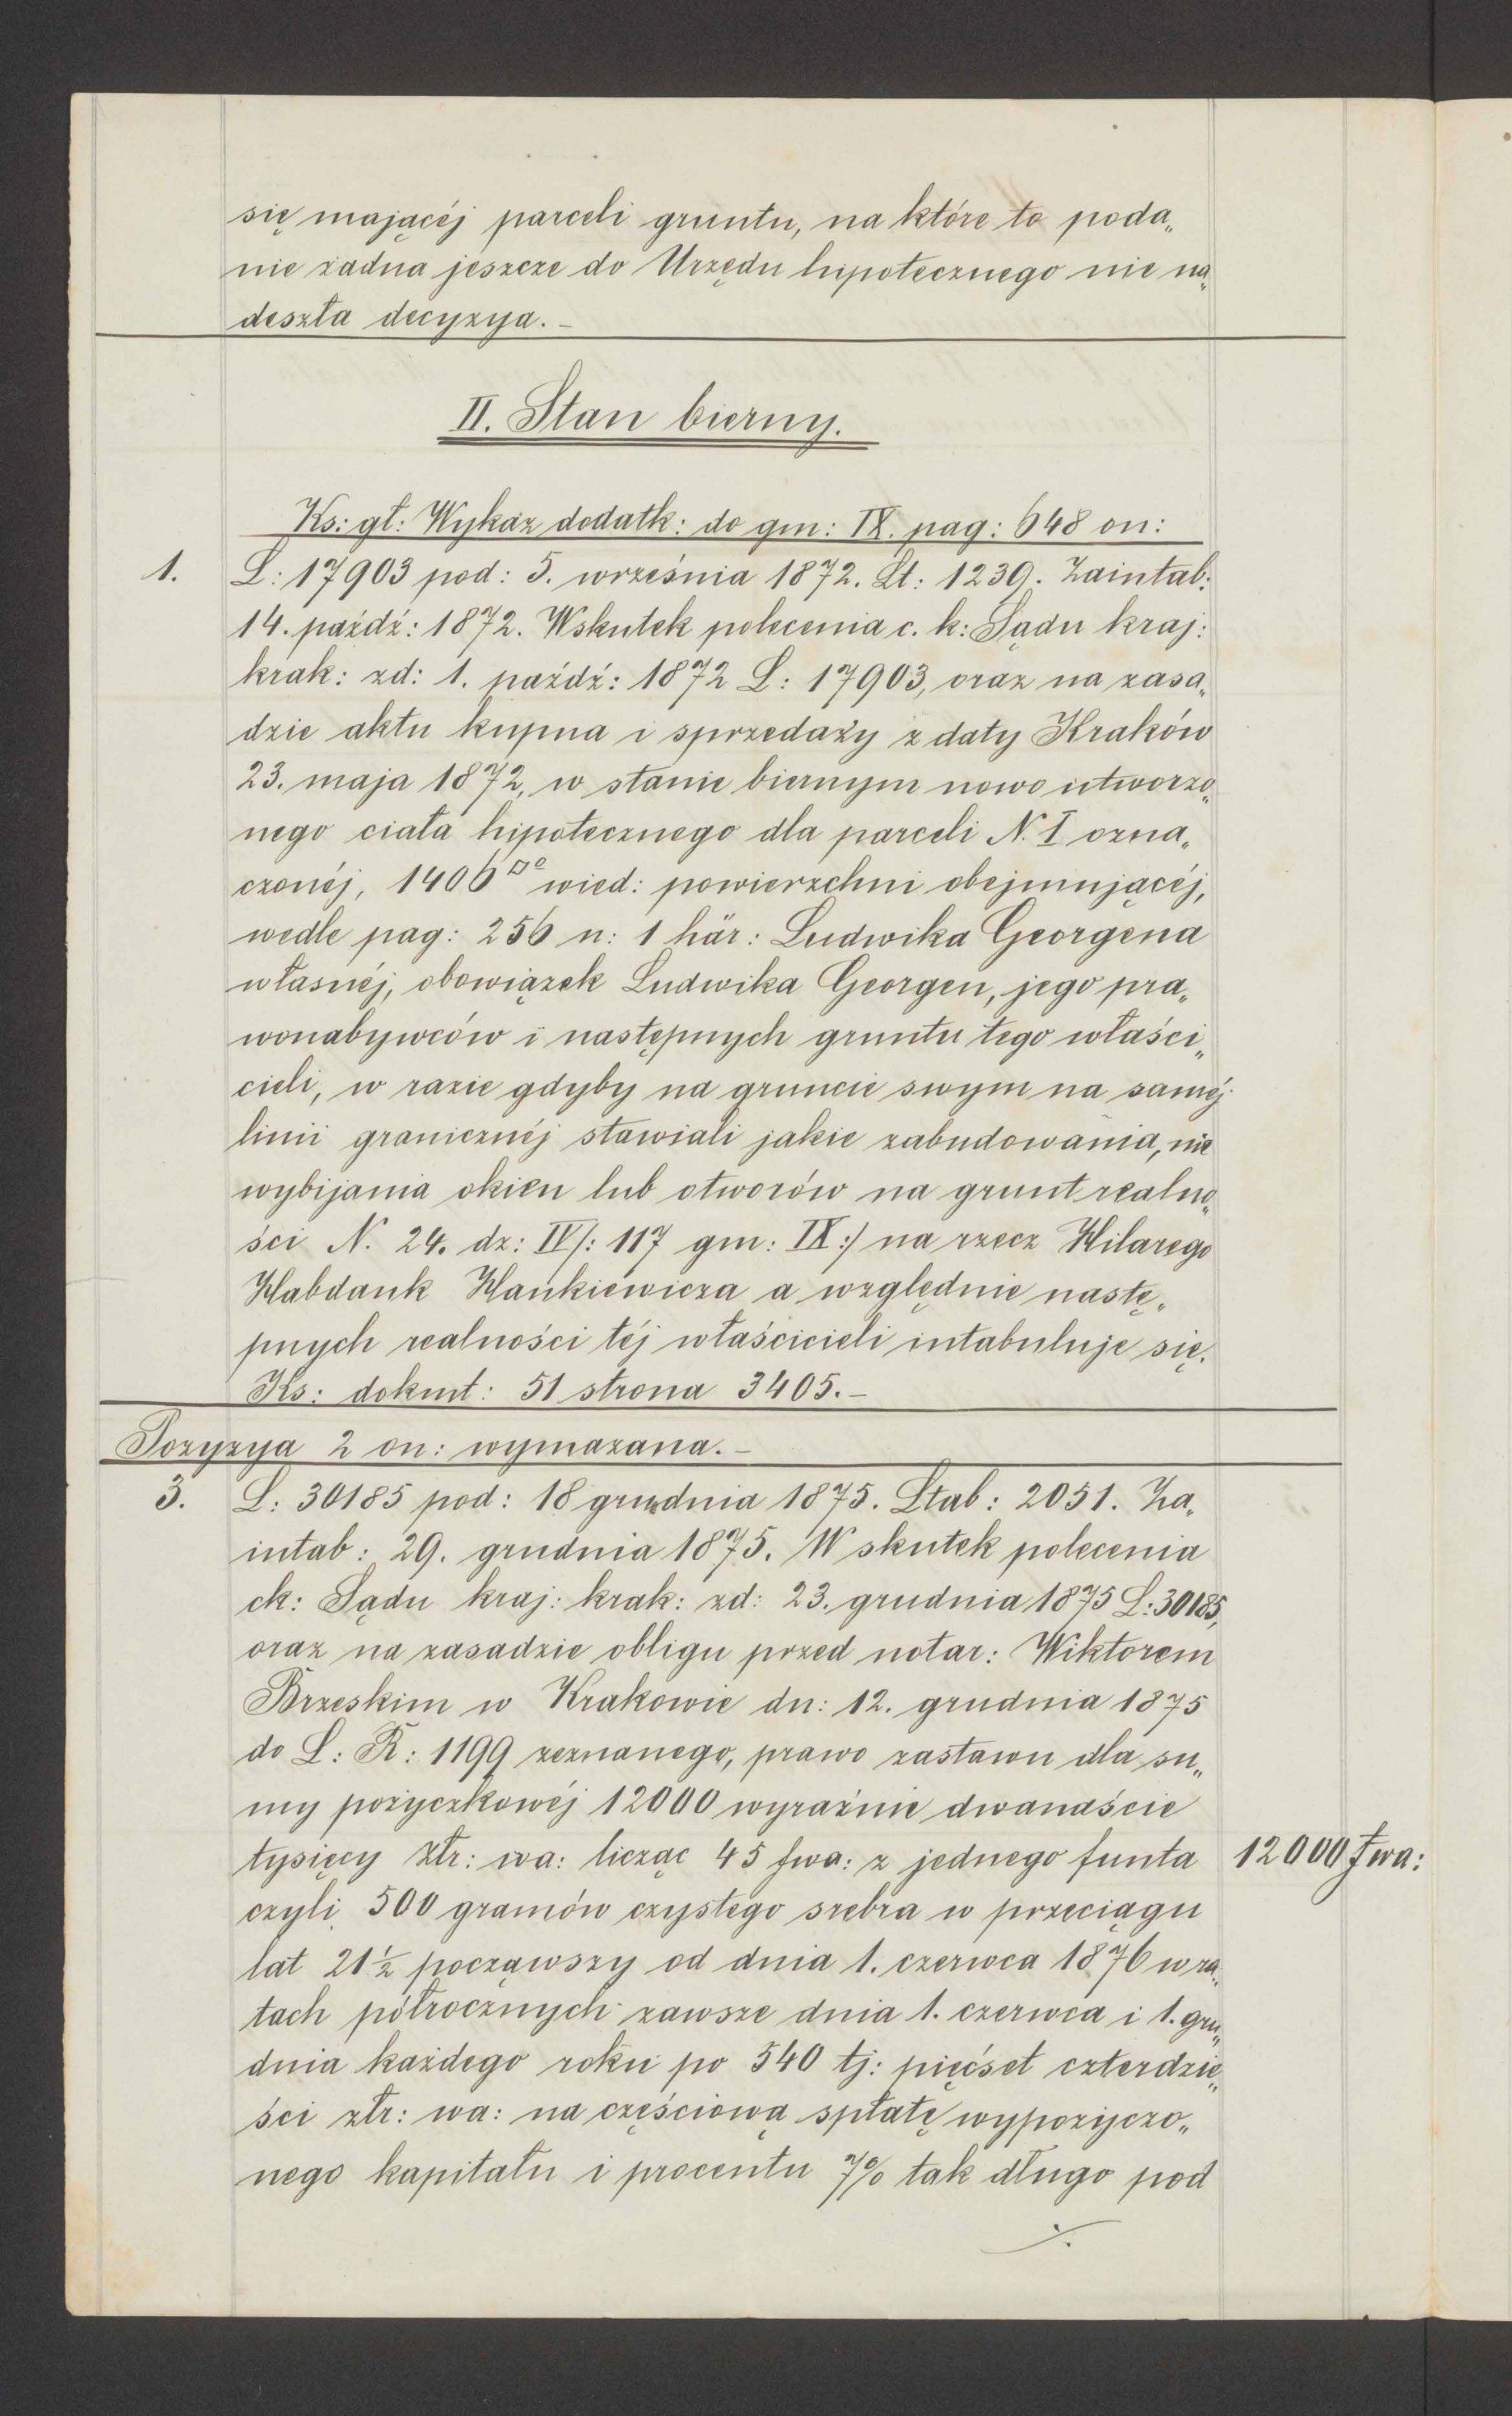 się mającéj parceli gruntu, na które to poda„
nie żadna jeszcze do Urzędu hipotecznego nie na„
deszła decyzya. –
II. Stan bierny.
Ks: gł: Wykaz dodatk: do gm: IX. pag: 648 on:
1. L: 17903 pod: 5. września 1872. Lt: 1239. Zaintab:
14. paźdź: 1872. Wskutek polecenia c. k: Sądu kraj:
krak: zd: 1. paźdź: 1872 L: 17903, oraz na zasa„
dzie aktu kupna i sprzedaży z daty Kraków
23. maja 1872, w stanie biernym nowo utworzo„
nego ciała hipotecznego dla parceli N. I ozna„
czonéj, 1406□° wied: powierzchni obejmującéj,
wedle pag: 256 n: 1 här: Ludwika Georgena
własnéj, obowiązek Ludwika Georgen, jego pra„
wonabywców i następnych gruntu tego właści„
cieli, w razie gdyby na gruncie swym na saméj
linii granicznéj stawiali jakie zabudowania, nie
wybijania okien lub otworów na grunt realno„
ści N. 24. dz: IV /: 117 gm: IX :/ na rzecz Hilarego
Habdank Hankiewicza a względnie nastę„
pnych realności téj właścicieli intabuluje się.
Ks: dokmt: 51 strona 3405. –
Pozyzya 2 on: wymazana. –
3. L: 30185 pod: 18 grudnia 1875. Ltab: 2051. Za„
intab: 29. grudnia 1875. W skutek polecenia
ck: Sądu kraj: krak: zd: 23. grudnia 1875 L: 30185,
oraz na zasadzie obligu przed notar: Wiktorem
Brzeskim w Krakowie dn: 12. grudnia 1875
do L: R: 1199 zeznanego, prawo zastawu dla su„
my pożyczkowéj 12000 wyraźnie dwanaście
tysięcy złr: wa: licząc 45 fwa: z jednego funta 12000 fwa:
czyli 500 gramów czystego srebra w przeciągu
lat 21½ począwszy od dnia 1. czerwca 1876 w ra„
tach półrocznych zawsze dnia 1. czerwca i 1. gru„
dnia każdego roku po 540 tj: pięćset czterdzie„
ści złr: wa: na częściową spłatę wypożyczo„
nego kapitału i procentu 7% tak długo pod
./.